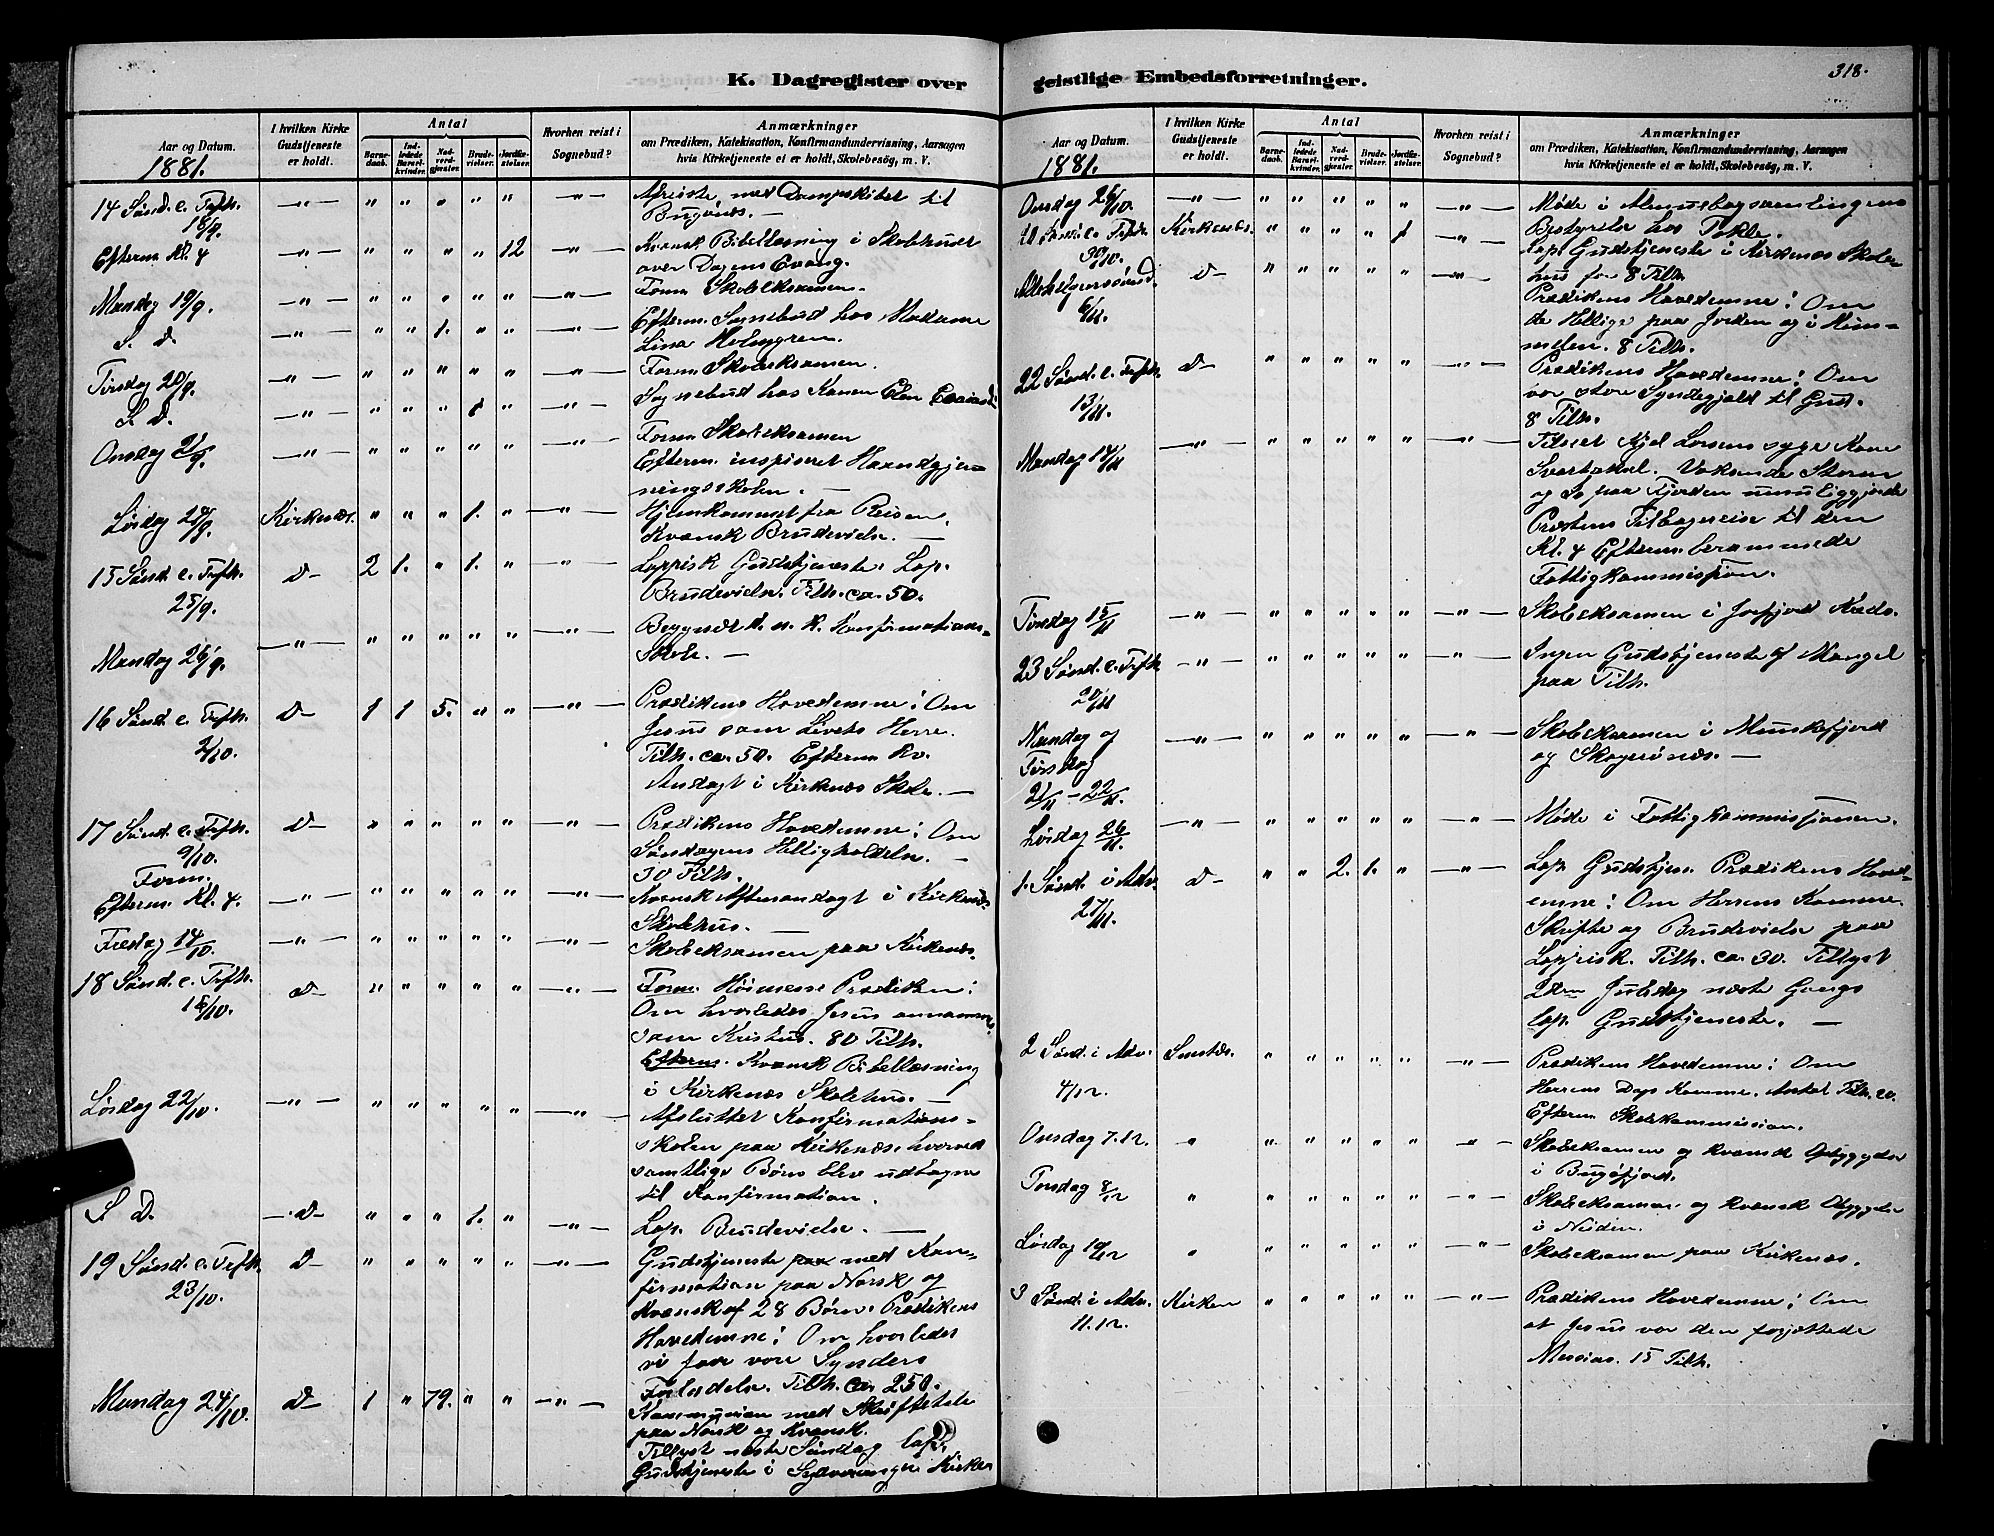 K. Dagregister over
Aar og Datum.
1881.
I hvilken Kirke Gudstjeneste er holdt.
Antal
Barnedaab.
Indledede Barselkvinder.
Nadverdgjester.
Brudevielser.
Jordfæstelser.
Hvorhen reist i Sognebud?
Anmærkninger
om Prædiken, Katekisation, Konfirmandundervisning, Aarsagen
hvis Kirketjeneste ei er holdt, Skolebesøg, m. V.
14 Sønd. e. Trefh. 18/9. — " — " " " " " — " — Afreiste med Dampskibet til
Bugønæs. —
Efterm. Kl. 4 — " — " " " " 12 — " — Kvænsk Bibellæsning i Skolehuset
over Dagens Evang.
Mandag 19/9. — " — " " " " " — " — Form. Skoleksamen.
S. D. — " — " " 1. " " — " — Efterm. Sognebud hos Madame
Lina Holmgren.
Tirsdag 20/9. — " — " " " " " — " — Form. Skoleksamen.
S. D. — " — " " " 1 " — " — Sognebud hos Konen Elen
Onsdag 21/9. — " — " " " " " — " — Form. Skoleksamen
Efterm. inspiseret Haandgjer-
ningsskolen. —
Lørdag 24/9. Kirkenæs. " " " 1. " — " — Hjemkommet fra Reisen.
Kvænsk Brudevielse. —
15 Sønd. e. Trefh. 25/9. D— 2 1. " 1. " — " — Lappisk Gudstjeneste. Lap.
Brudevielse. Tilh. ca. 50.
Mandag 26/9. — " — " " " " " — " — Begyndt d. n. k. Konfirmations-
Skole. —
16 Sønd. e. Trefh. 2/10. D— 1 1 5. " " — " — Prædikens Hovedemne: Om
Jesus som Livets Herre.
Tilh. ca. 50. Efterm. Kv.
Andagt i Kirkenæs Skole. —
17 Sønd. e. Trefh. 9/10. Form. D— " " " " " — " — Prædikens Hovedemne: Om
Søndagens Helligholdelse. —
30 Tilh.
Efterm. Kl. 4. — " — " " " " " — " — Kvænsk Aftenandagt i Kirkenæs
Skolehus. —
Fredag 14/10. — " — " " " " " Skoleksamen paa Kirkenæs.
18 Sønd. e. Trefh. 16/10. D— " " " " " — " — Form. Høimesse Prædiken:
Om hvorledes Jesus annammes
som Kristus. 80 Tilh.
Efterm. Kvænsk Bibellæsning
i Kirkenæs Skolehus. —
Lørdag 22/10. — " — " " " " " — " — Afsluttet Konfirmations-
skolen paa Kirkenæs hvorved
samtlige Børn blev udtagne
til Konfirmation.
S. D. — D— " " " 1. " — " — Lap. Brudevielse. —
19 Sønd. e. Trefh. 23/10. D— " " " " " — " — Gudstjeneste paa med Kon-
firmation paa Norsk og
Kvænsk af 28 Børn. Prædikens
Hovedemne: Om hvorledes
vi faar vore Synders
Forladelse. Tilh. ca 250.
Mandag 24/10. D— 1 " 79. " " — " — Kommunion med Skriftetale
paa Norsk og Kvænsk.
Tillyst næste Søndag lap.
Gudstjeneste i Sydvaranger Kirke
geistlige Embedsforretninger.
318.
Aar og Datum.
1881.
I hvilken Kirke Gudstjeneste er holdt.
Antal
Barnedaab.
Indledede Barselkvinder.
Nadverdgjester.
Brudevielser.
Jordfæstelser.
Hvorhen reist i Sognebud?
Anmærkninger
om Prædiken, Katekisation, Konfirmandundervisning, Aarsagen
hvis Kirketjeneste ei er holdt, Skolebesøg, m. V.
Onsdag 26/10. — " — " " " " " — " — Møde i Almuebogsamlingens
Bestyrelse hos Tokle.
20 Sønd. e. Trefh. 30/10. Kirkenæs. " " " " 1 — " — Lap. Gudstjeneste i Kirkenæs Skole-
hus for 8 Tilh.
Allehelgenssønd. 6/11. D— " " " " " — " — Prædikens Hovedemne: Om
de Hellige paa Jorden og i Him-
melen. 8 Tilh.
22 Sønd. e. Trefh. 13/11. D— " " " " " — " — Prædikens Hovedemne: Om
vor store Syndegjæld til Gud.
8 Tilh.
Mandag 14/11 — " — " " " " " — " — Tilseet Kjel Larsens syge Kone
Svartaksel. Voksende Storm
og Sø paa Fjorden umuliggjorde
Prestens Tilbagereise til den
Kl. 4 Efterm. berammede
Fattigkommission.
Tirsdag 15/11 — " — " " " " " — " — Skoleksamen i Jarfjord Kreds.
23 Sønd. e. Trefh. 20/11 — " — " " " " " — " — Ingen Gudstjeneste af Mangel
paa Tilh.
Mandag og Tirsdag 21/11 – 22/11. — " — " " " " " — " — Skoleksamen i Munkefjord
og Skogerønæs. —
Lørdag 26/11. — " — " " " " " — " — Møde i Fattigkommissionen.
1. Sønd. i Adv. 27/11. D— " " 2. 1. " — " — Lap. Gudstjen. Prædikens Hoved-
emne: Om Herrens Komme.
Skrifte og Brudevielse paa
Lappisk. Tilh. ca. 30. Tillyst
2den Juledag næste Gangs
lap. Gudstjeneste. —
2 Sønd. i Adv. 4/12. " " " " " — " — Prædikens Hovedemne: Om
Herrens Dags Komme. Antal Tilh. 20.
Efterm. Skolekommission.
Onsdag 7.12. " " " " " " — " — Skoleksamen og kvænsk Opbyggelse
i Bugøfjord.
Torsdag 8/12 " " " " " " — " — Skoleksamen og kvænsk Opbyggelse
i Neiden.
Lørdag 10/12 " " " " " " — " — Skoleksamen paa Kirkenæs.
3 Sønd. i Adv. 11.12. Kirken " " " " " — " — Prædikens Hovedemne: Om
at Jesus var den forjættede
Messias. 15 Tilh.